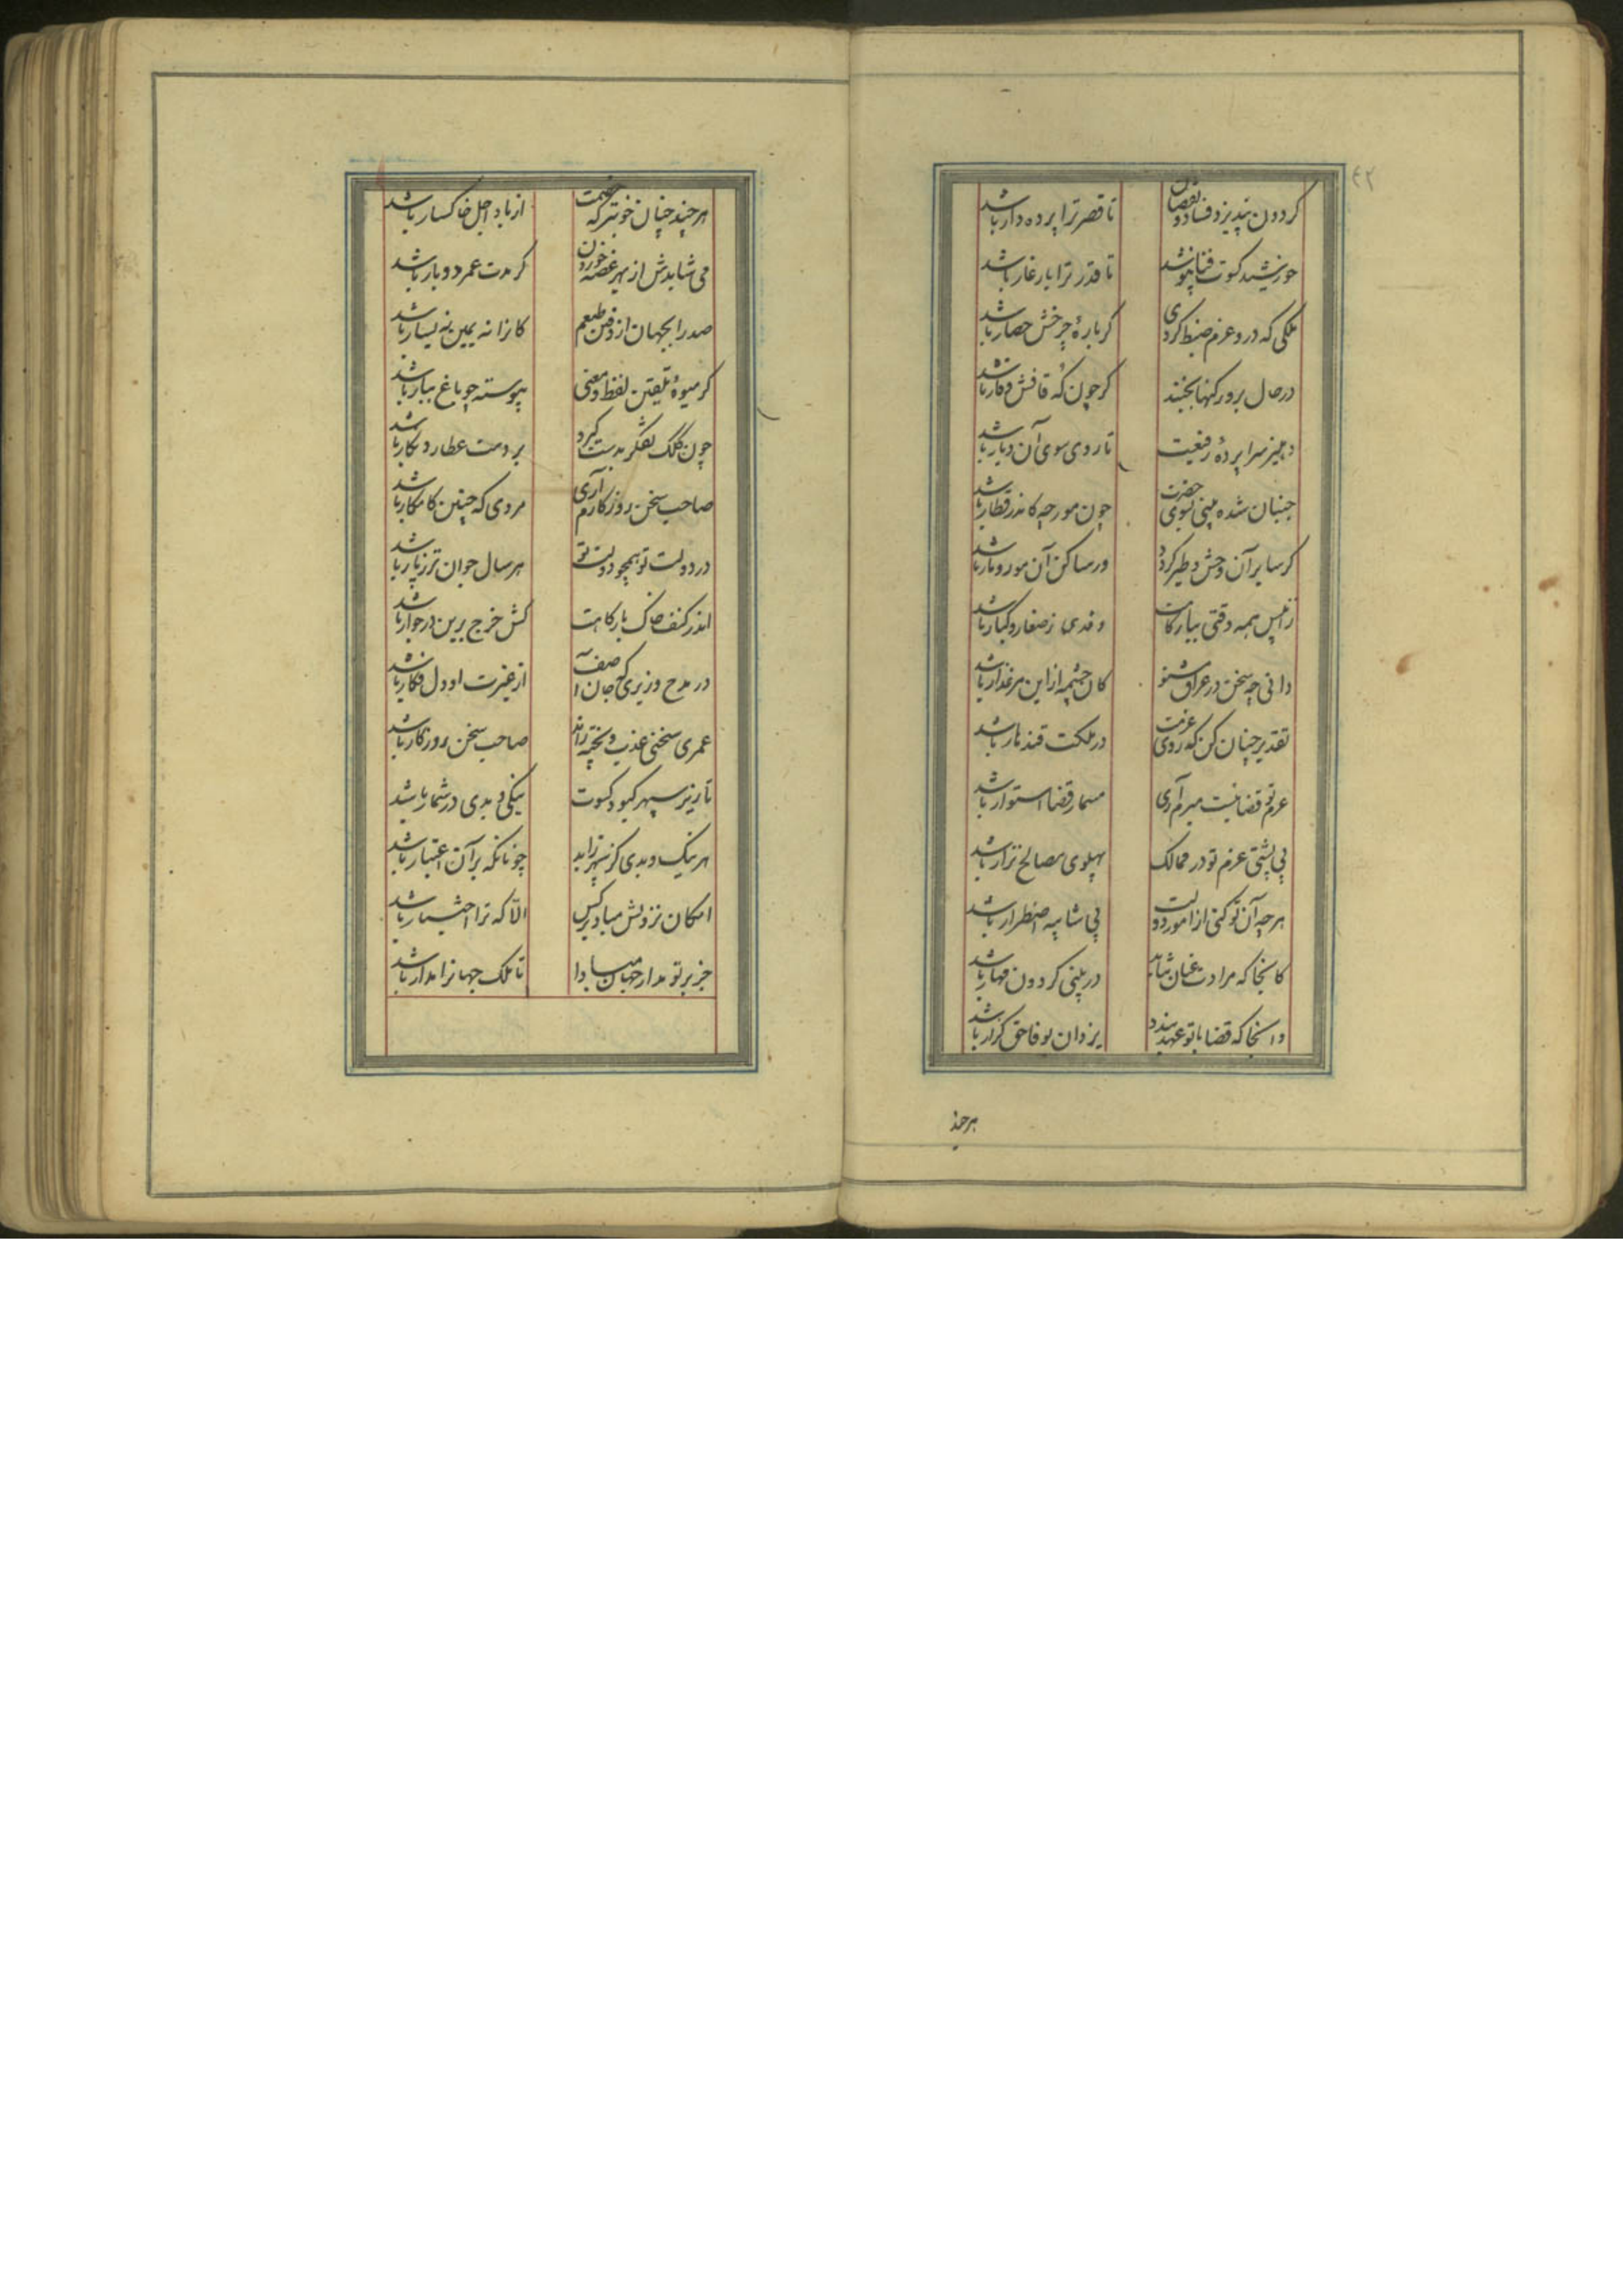 ٤٢
کردون نپذیرد فساد و نقصان تا قصر ترا پرده دار باشد
خورشید کسوت فنا نپوشد تا قدر ترا یار غار باشد
ملکی که درو عزم ضبط کردی کر بارهٔ چرخش حصار باشد
در حال برو رکنها بجنبد کر چون که قافش وقار باشد
دهلیز سراپردهٔ رفعیت تا روی سوی آن دیار باشد
جنبان شده بینی بسوی حضرت چون مورچه کاندر قطار باشد
کر سایر آن وحش و طیر کردد ور ساکن آن مور و مار باشد
زان پس همه وقتی ببارکاهت وفدی ز صغار و کبار باشد
دانی چه سخن در عراق مشنو کان چشمه ازاین مرغذار باشد
تقدیر چنان کن که روی عزمت در ملکت قندهار باشد
عزم تو قضائیست مبرم آری مسمار قضا استوار باشد
بی پشتی عزم تو در ممالک پهلوی مصالح نزار باشد
هر چه آن تو کنی از امور دولت بی شایبه اضطرار باشد
کانجا که مرادت عنان بتابد در بینی کردون مهار باشد
وانجا که قضا با تو عهد بندد یزدان بوفا حق کزار باشد
هرچند
هر چند چنان خوبتر که خصمت از باد اجل خاکسار باشد
می شایدش از بهر غصه خوردن کر مدت عمر دو بار باشد
صدرا بجهان از دفین طبعم کانرا نه یمین نه یسار باشد
کر میوهٔ تلقین لفظ و معنی پیوسته چو باغ ببار باشد
چون کلک تفکر بدست کیرد بر دست عطارد نکار باشد
صاحب سخن روزکارم آری مردی که چنین کامکار باشد
در دولت تو همچو دولت تو هر سال جوان تر ز پار باشد
اندر کنف خاک بارکاهت کش خرج برین در جوار باشد
در مدح وزیری که جان آصف از غیرت او دل فکار باشد
عمری سخنی عذب و پخته راند صاحب سخن روزکار باشد
تا زیر سپهر کبود کسوت نیکی و بدی در شمار باشد
هر نیک و بدی کز سپهر زاید چونانکه بر آن اعتبار باشد
امکان نزولش مباد بر کس الا که ترا اختیار باشد
جز بر تو مدار جهان مبادا تا ملک جهانرا مدار باشد